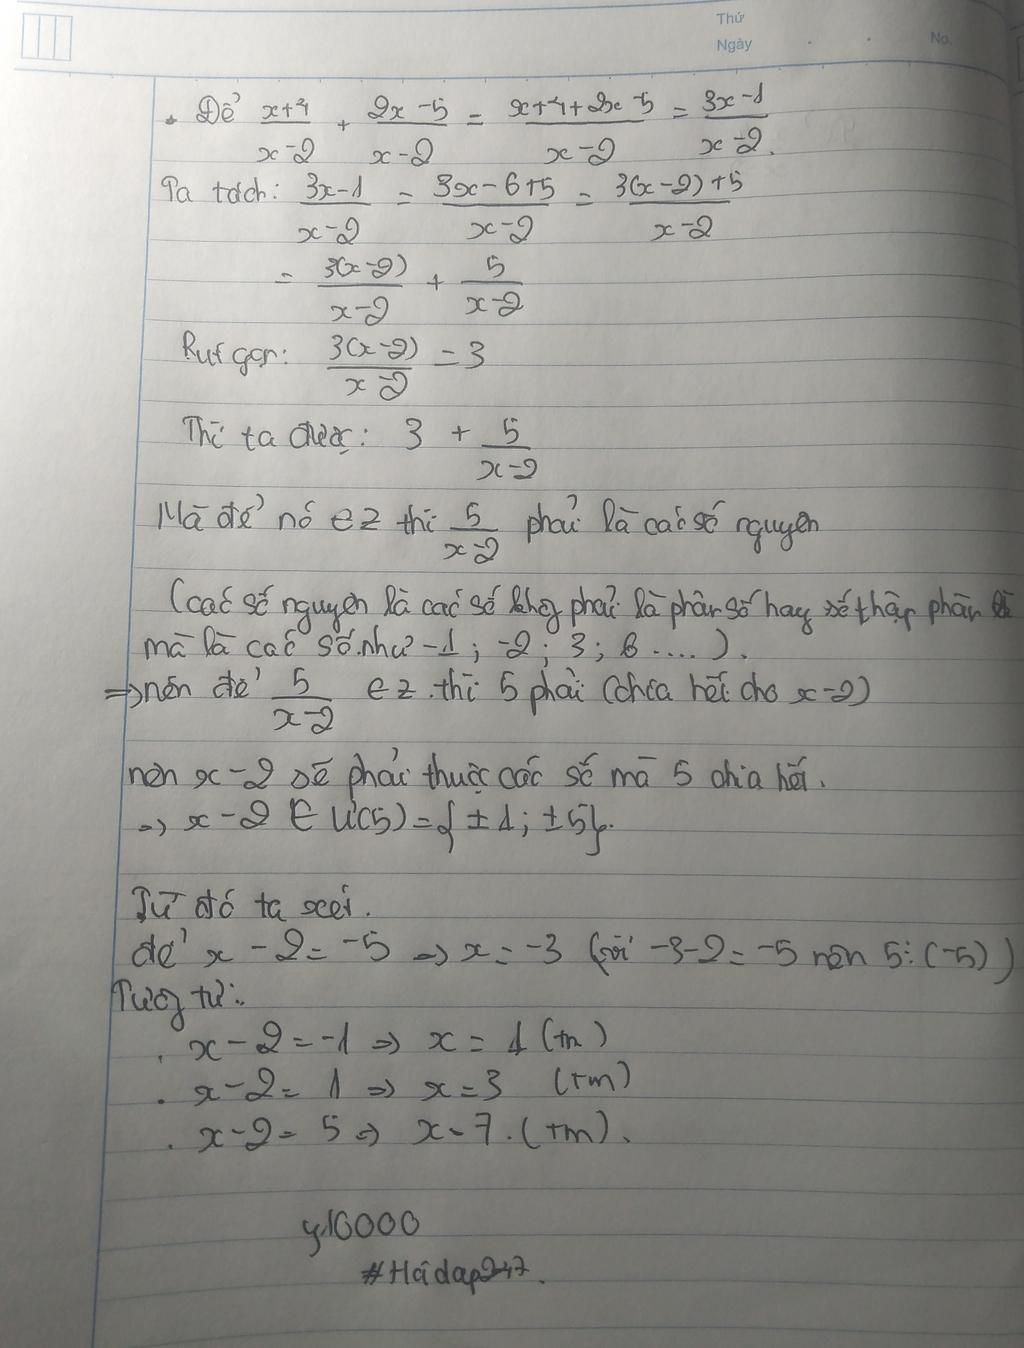 Thứ
Ngày
No.
. Để x+4/x-2 + 2x-5/x-2 = x+4+2x-5/x-2 = 3x-1/x-2.
Ta tách: 3x-1/x-2 = 3x-6+5/x-2 = 3(x-2)+5/x-2
= 3(x-2)/x-2 + 5/x-2
Rút gọn: 3(x-2)/x-2 = 3
Thì ta được: 3 + 5/x-2
Mà để nó ∈ Z thì 5/x-2 phải là các số nguyên
(các số nguyên là các số không phải là phân số hay số thập phân
mà là các số như -1; -2; 3; 6 ....).
=> nên để 5/x-2 ∈ Z thì 5 phải (chia hết cho x-2)
nên x-2 sẽ phải thuộc các số mà 5 chia hết.
=> x-2 ∈ Ư(5) = {±1; ±5}.
Từ đó ta xét.
để x-2 = -5 => x = -3 (với -3-2 = -5 nên 5⋮(-5))
Tương tự:
. x-2 = -1 => x = 1 (tm)
. x-2 = 1 => x = 3 (tm)
. x-2 = 5 => x = 7. (tm).
#Hoidap247.